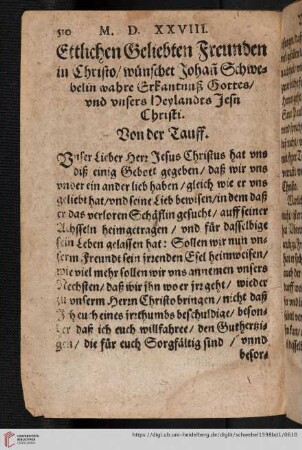 510 M. D. XXVIII.
Ettlichen Geliebten Freunden
in Christo/ wünschet Johañ Schwe-
belin wahre Erkantnuß Gottes/
vnd vnsers Heylandts Jesu
Christi.
Von der Tauff.
Vnser Lieber Herr Jesus Christus hat vns
diß einig Gebott gegeben/ daß wir vns
vnder ein ander lieb haben/ gleich wie er vns
geliebt hat/ vnd seine Lieb bewisen/ in dem daß
er das verloren Schäflin gesucht/ auff seiner
Achseln heimgetragen / vnd für dasselbige
sein Leben gelassen hat: Sollen wir nun vn-
serm Freundt sein irrenden Esel heimweisen/
wie viel mehr sollen wir vns annemen vnsers
Nechsten/ daß wir jhn wo er jrr geht/ wieder
zu vnserm Herrn Christo bringen/ nicht daß
Ich euch eines jrrthumbs beschuldige/ beson-
der daß ich euch willfahre/ den Guthertzi-
gen/ die für euch Sorgfältig sind / vnnd
besor-
https://digi.ub.uni-heidelberg.de/diglit/schwebel1598bd1/0610